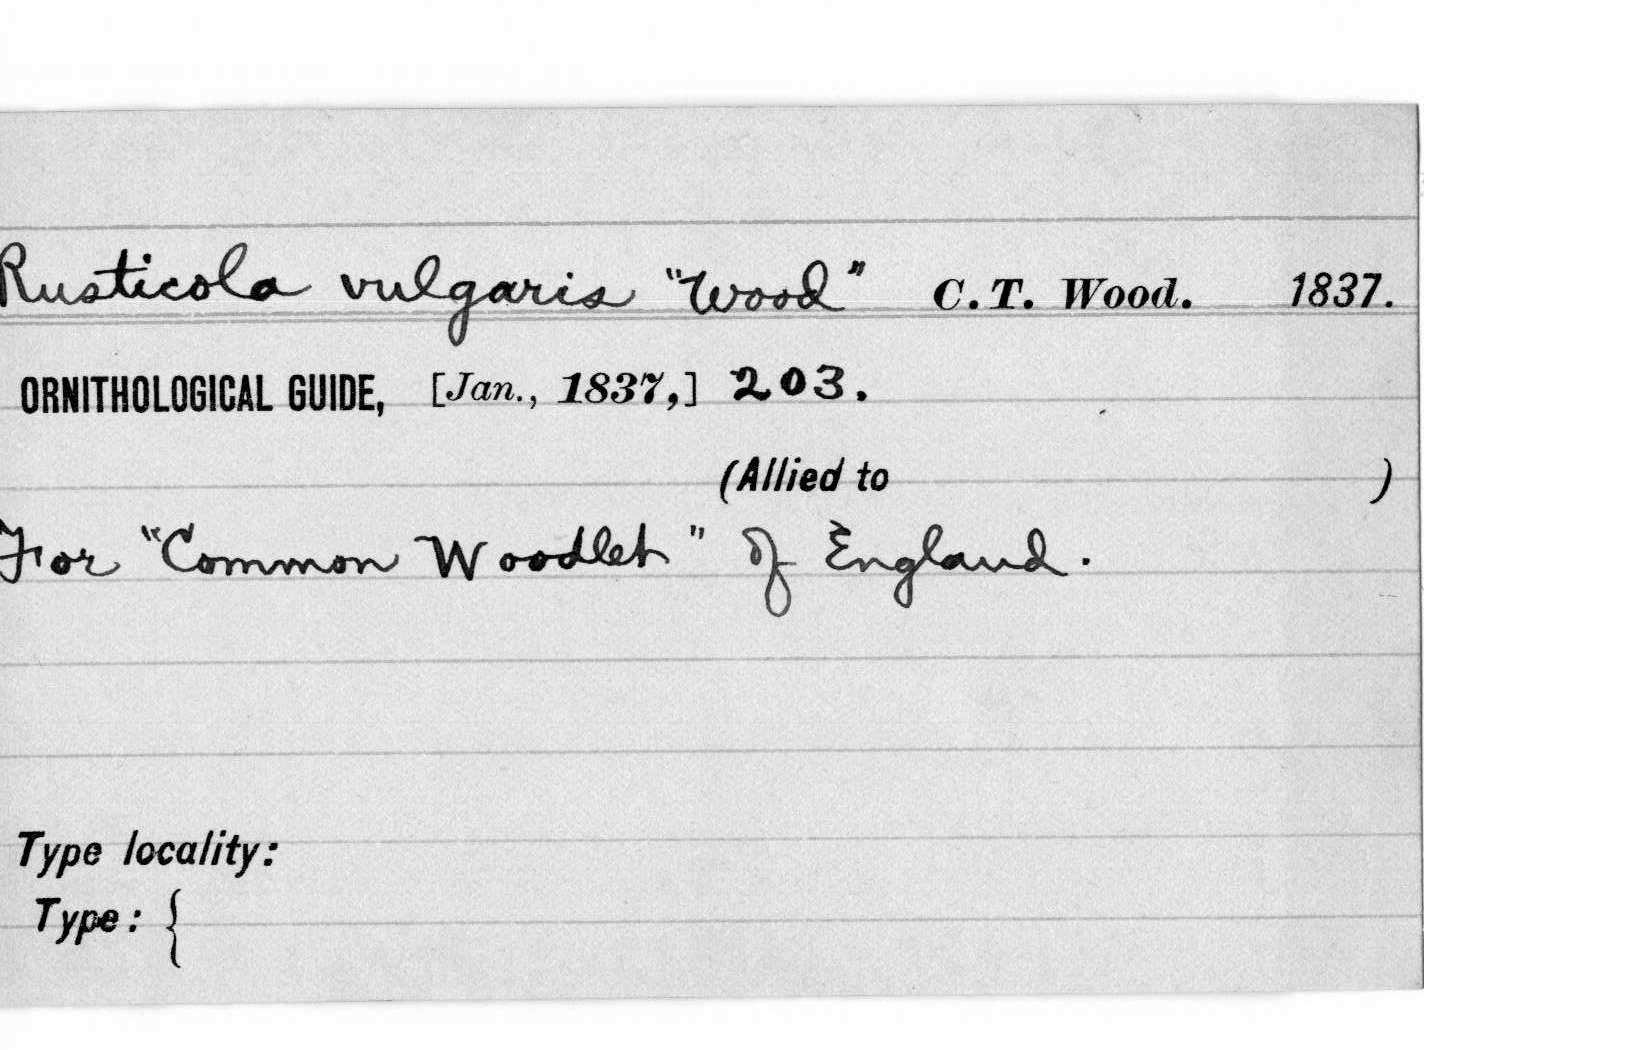 Rusticola vulgaris "Wood" C. T. Wood. 1837.
ORNITHOLOGICAL GUIDE, [Jan., 1837,] 203.
(Allied to )
For "Common Woodlet" of England.
Type locality:
Type: {